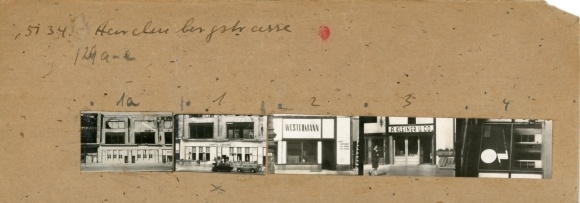 5134 Hardenbergstrasse
1a 1 2 3 4
WESTERMANN
R. KLEINER U. CO.